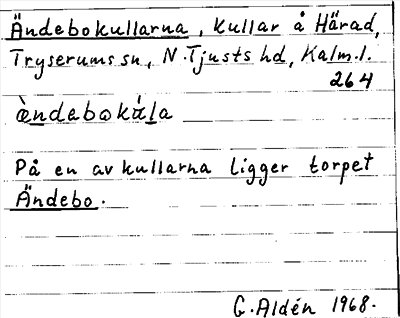 Ändebokullarna, kullar å Härad,
Tryserums sn, N.Tjusts hd, Kalm.l.
264
æ̀ndebokála
På en av kullarna ligger torpet
Ändebo.
G. Aldén 1968.